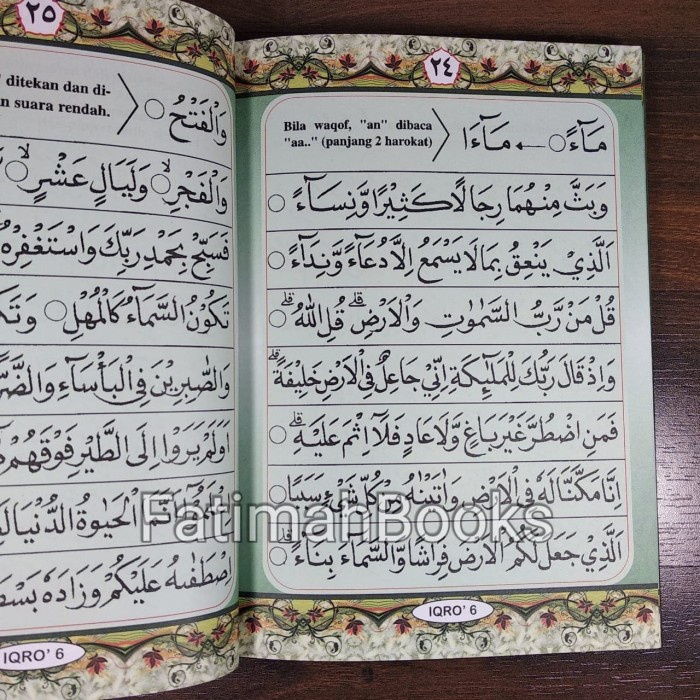 ٢٤
مَآءً ← مَآءَا
Bila waqof, "an" dibaca
"aa.." (panjang 2 harokat)
وَبَثَّ مِنْهُمَا رِجَالًا كَثِيْرًا وَّنِسَآءً
اَلَّذِيْ يَنْعِقُ بِمَا لَا يَسْمَعُ اِلَّا دُعَآءً وَّنِدَآءً
قُلْ مَنْ رَّبُّ السَّمٰوٰتِ وَالْاَرْضِ ۗ قُلِ اللّٰهُ ۗ
وَاِذْ قَالَ رَبُّكَ لِلْمَلٰٓئِكَةِ اِنِّيْ جَاعِلٌ فِى الْاَرْضِ خَلِيْفَةً ۗ
فَمَنِ اضْطُرَّ غَيْرَ بَاغٍ وَّلَا عَادٍ فَلَآ اِثْمَ عَلَيْهِ ۗ
اِنَّا مَكَّنَّا لَهٗ فِى الْاَرْضِ وَاٰتَيْنٰهُ مِنْ كُلِّ شَيْءٍ سَبَبًا
اَلَّذِيْ جَعَلَ لَكُمُ الْاَرْضَ فِرَاشًا وَّالسَّمَآءَ بِنَآءً ۗ
IQRO' 6
٢٥
وَالْفَتْحُ
ditekan dan di-
suara rendah.
وَالْفَجْرِ ۙ وَلَيَالٍ عَشْرٍ ۙ
فَسَبِّحْ بِحَمْدِ رَبِّكَ وَاسْتَغْفِرْهُ
تَكُوْنُ السَّمَآءُ كَالْمُهْلِ
وَالصّٰبِرِيْنَ فِى الْبَأْسَآءِ
اَوَلَمْ يَرَوْا اِلَى الطَّيْرِ فَوْقَهُمْ
الْحَيٰوةُ الدُّنْيَا
اصْطَفٰىهُ عَلَيْكُمْ وَزَادَهٗ
IQRO' 6
FatimahBooks